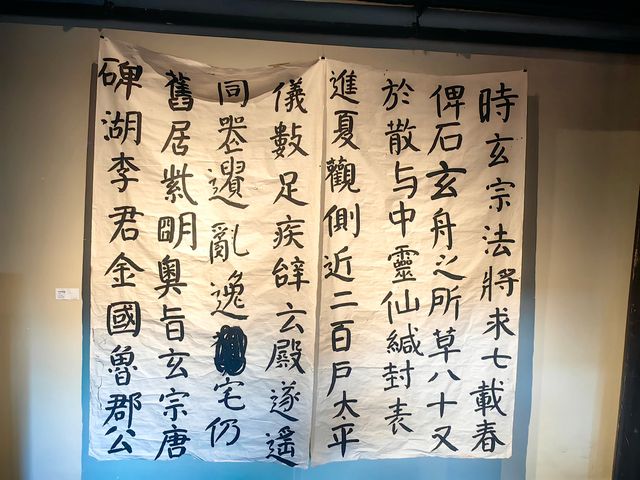 時玄宗法將求七載春
俾石玄舟之所草八十又
於散与中靈仙緘封表
進夏觀側近二百戶太平
儀數足疾辝玄殿遂遥
同亂逸宅仍
舊居紫明奧旨玄宗唐
碑湖李君金國魯郡公